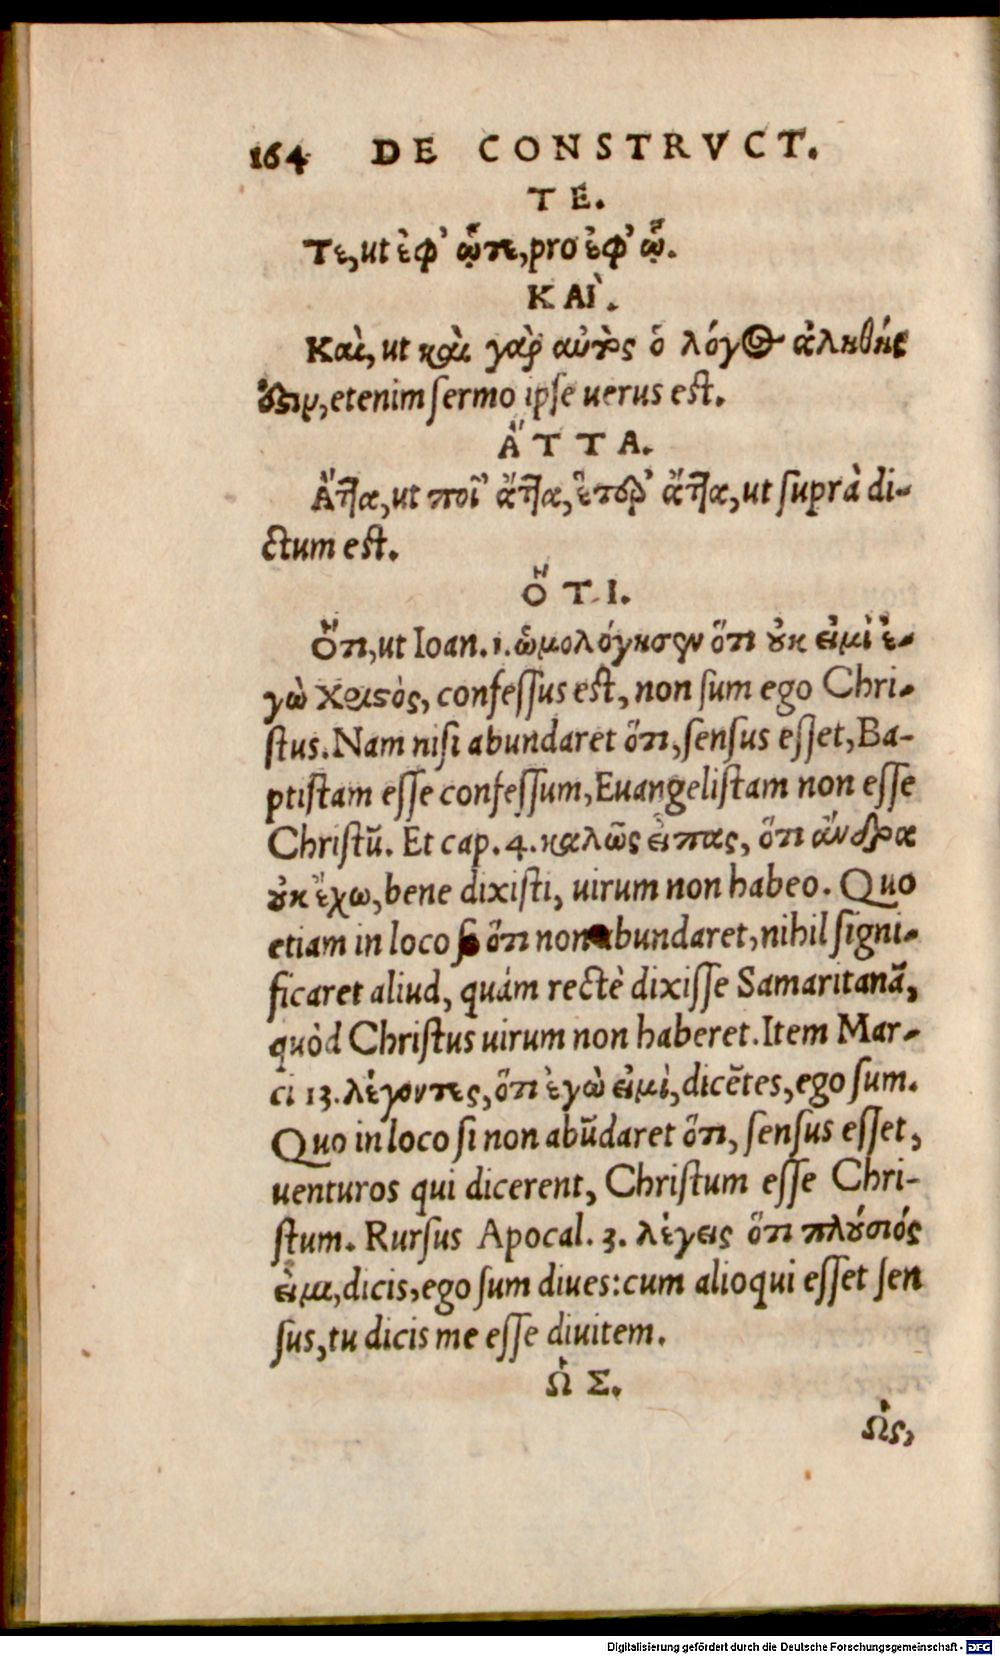 164 DE CONSTRVCT.
ΤΈ.
Τε, ut ἐφ᾽ ᾧτε, pro ἐφ᾽ ᾧ.
ΚΑῚ.
Καὶ, ut καὶ γὰρ αὐτὸς ὁ λόγος ἀληθής
ἐστιν, etenim sermo ipse uerus est.
ἌΤΤΑ.
Ἄττα, ut ποῖ᾽ ἄττα, ἕτερ᾽ ἄττα, ut suprà di-
ctum est.
ὍΤΙ.
Ὅτι, ut Ioan. 1. ὡμολόγησεν ὅτι οὐκ εἰμὶ ἐ-
γὼ χριστὸς, confessus est, non sum ego Chri-
stus. Nam nisi abundaret ὅτι, sensus esset, Ba-
ptistam esse confessum, Euangelistam non esse
Christũ. Et cap. 4. καλῶς εἶπας, ὅτι ἄνδρα
οὐκ ἔχω, bene dixisti, uirum non habeo. Quo
etiam in loco ὅτι non abundaret, nihil signi-
ficaret aliud, quàm rectè dixisse Samaritanã,
quòd Christus uirum non haberet. Item Mar-
ci 13. λέγοντες, ὅτι ἐγὼ εἰμὶ, dicẽtes, ego sum.
Quo in loco si non abũdaret ὅτι, sensus esset,
uenturos qui dicerent, Christum esse Chri-
stum. Rursus Apocal. 3. λέγεις ὅτι πλούσιός
εἰμι, dicis, ego sum diues: cum alioqui esset sen
sus, tu dicis me esse diuitem.
ὩΣ.
Ὡς,
Digitalisierung gefördert durch die Deutsche Forschungsgemeinschaft - DFG